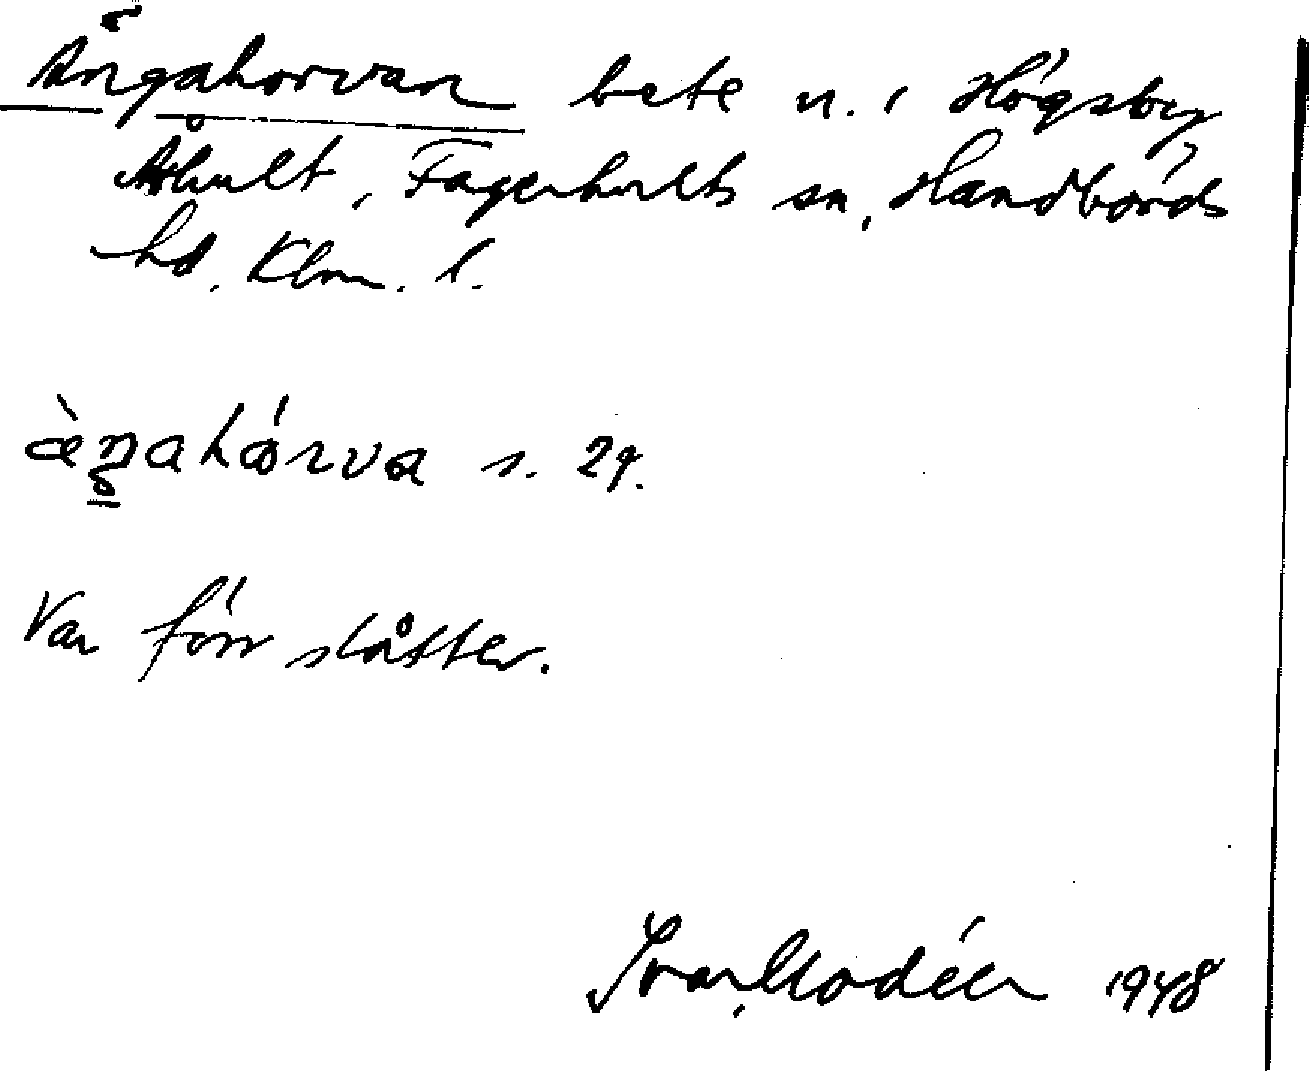 Ängahorvan bete n. i Högsby
Århult, Fagerhults sn, Handbörds
hd. Klm. l.
s. 29.
Var förr slåtter.
Ivar Modéer 1948